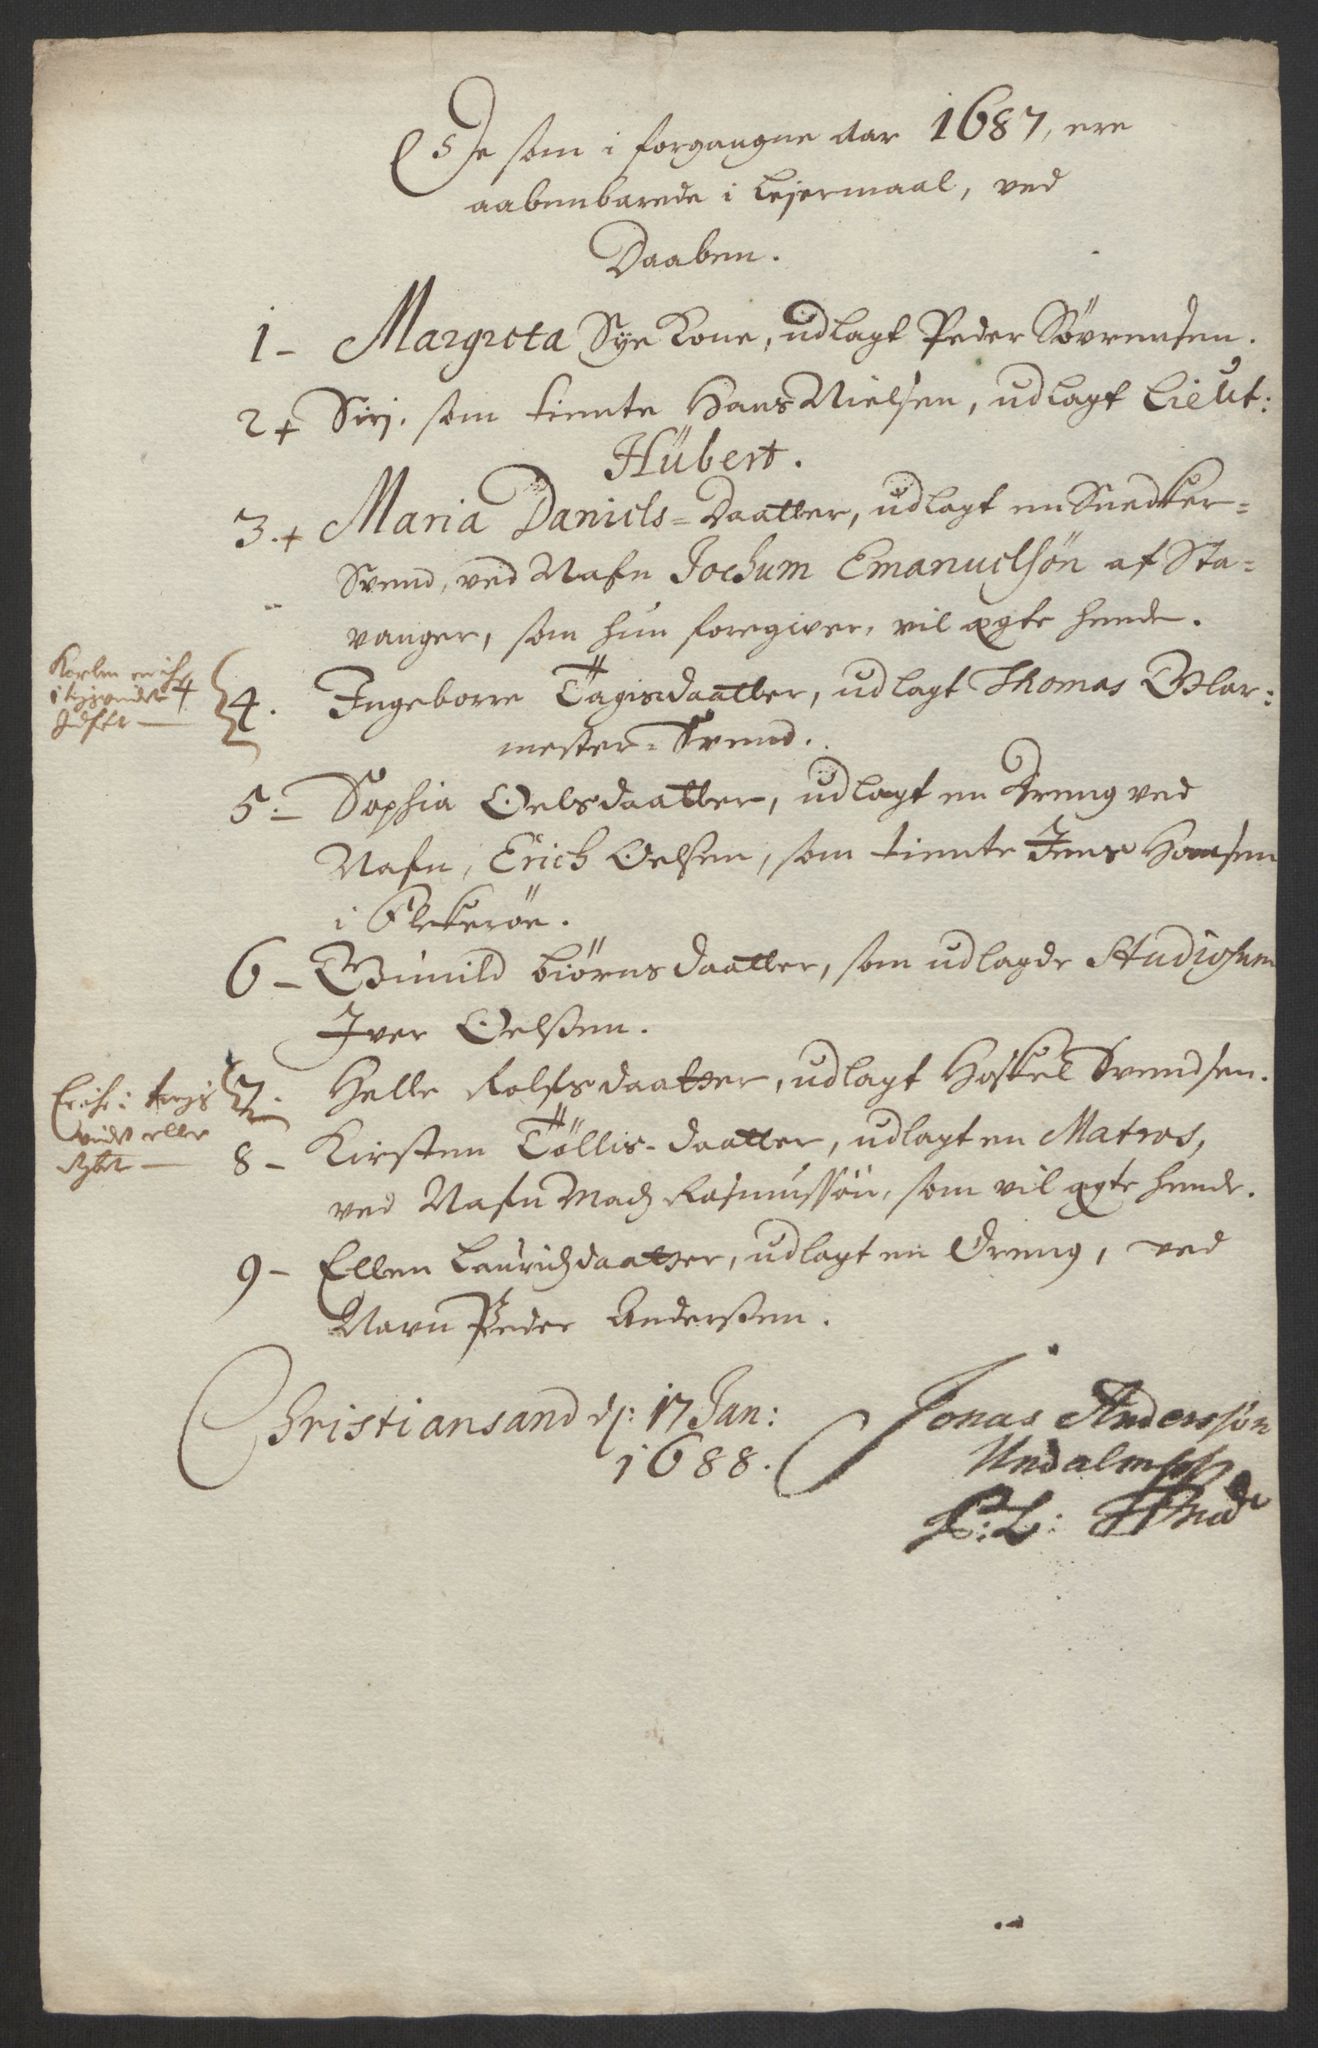 De som i forgangne Aar 1687, ere
aabenbarede i Lejermaal, ved
Daaben.
1 - Margreta Sye Kone, udlagt Peder Sövrensen.
2 + Siri. som tiente Hans Nielsen, udlagt Lieut:
Hübert.
3. + Maria Daniels=Daatter, udlagt en Snedker=
Svend, ved Nafn Jochum Emanuelsön af Sta=
vanger, som hun foregiver, vil ægte hende.
4. Ingeborre Tagisdaatter, udlagt Thomas Glar:
mester=Svend.
5:- Sophia Oelsdaatter, udlagt en Dreng ved
Nafn, Erich Oelsen, som tiente Jens Hansen
i Flekeröe.
6 - Gunild biörnsdaatter, som udlagde Studiosum
Iver Oelssen.
7. Helle Rolfsdaatter, udlagt Hoskel Svendsen.
8 - Kirsten Töllis-daatter, udlagt en Matros,
ved Nafn Madz Rasmussön, som vil ægte hende.
9 - Ellen Lauridzdaatter, udlagt en Dreng, ved
Navn Peder Anderssen.
Christiansand d: 17 Jan:
1688.
Jonas Anderssön
eller